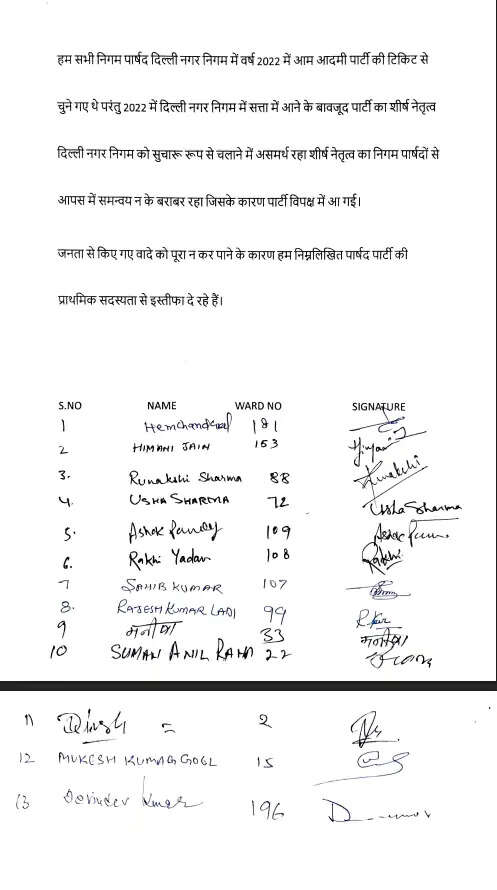 हम सभी निगम पार्षद दिल्ली नगर निगम में वर्ष 2022 में आम आदमी पार्टी की टिकिट से
चुने गए थे परंतु 2022 में दिल्ली नगर निगम में सत्ता में आने के बावजूद पार्टी का शीर्ष नेतृत्व
दिल्ली नगर निगम को सुचारू रूप से चलाने में असमर्थ रहा शीर्ष नेतृत्व का निगम पार्षदों से
आपस में समन्वय न के बराबर रहा जिसके कारण पार्टी विपक्ष में आ गई।
जनता से किए गए वादे को पूरा न कर पाने के कारण हम निम्नलिखित पार्षद पार्टी की
प्राथमिक सदस्यता से इस्तीफा दे रहे हैं।
S.NO NAME WARD NO SIGNATURE
1 181
2 HIMANI JAIN 153
3. Runakshi Sharma 88 Runakshi
4. USHA SHARMA 72 Usha Sharma
5. Ashok Pandey 109 Ashok
6. Rakhi Yadav 108 Rakhi
7 SAHIB KUMAR 107
8. RAJESH KUMAR LADI 99
9 मनीषा 33 मनीषा
10 SUMAN ANIL RANA 22
11 Dinesh = 2
12 MUKESH KUMAR GOEL 15
13 Devinder Kumar 196